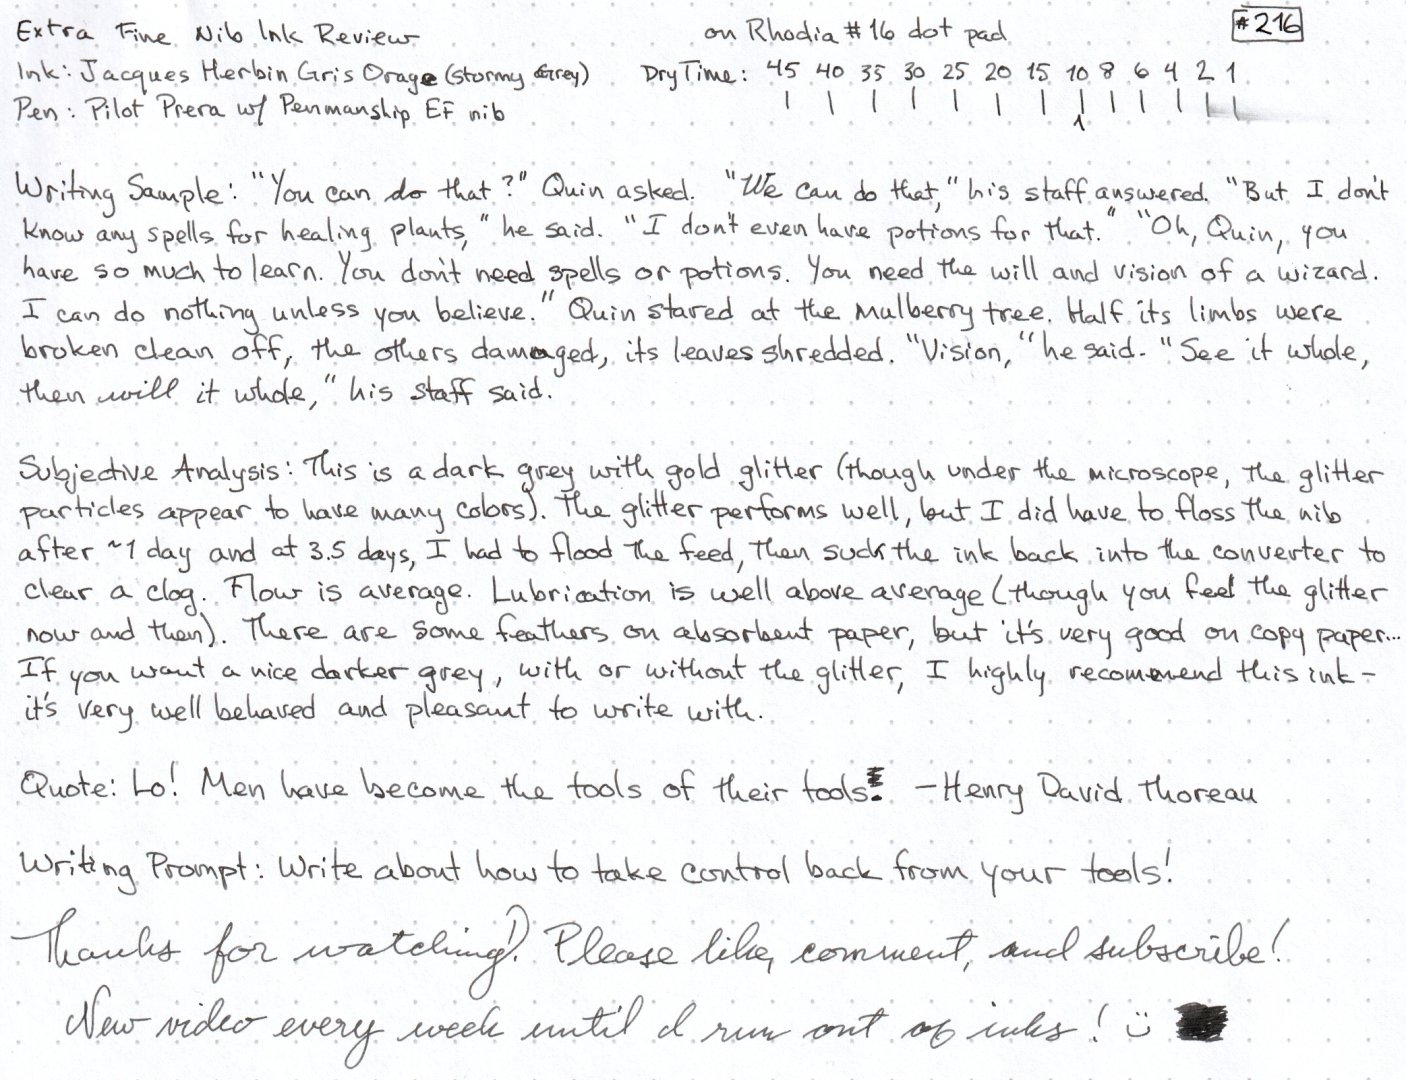 Extra Fine Nib Ink Review on Rhodia #16 dot pad #216
Ink: Jacques Herbin Gris Orage (Stormy Grey) Dry Time: 45 40 35 30 25 20 15 10 8 6 4 2 1
Pen: Pilot Prera w/ Penmanship EF nib
Writing Sample: "You can do that?" Quin asked. "We can do that," his staff answered. "But I don't
know any spells for healing plants," he said. "I don't even have potions for that." "Oh, Quin, you
have so much to learn. You don't need spells or potions. You need the will and vision of a wizard.
I can do nothing unless you believe." Quin stared at the mulberry tree. Half its limbs were
broken clean off, the others damaged, its leaves shredded. "Vision," he said. "See it whole,
then will it whole," his staff said.
Subjective Analysis: This is a dark grey with gold glitter (though under the microscope, the glitter
particles appear to have many colors). The glitter performs well, but I did have to floss the nib
after ~1 day and at 3.5 days, I had to flood the feed, then suck the ink back into the converter to
clear a clog. Flow is average. Lubrication is well above average (though you feel the glitter
now and then). There are some feathers on absorbent paper, but it's very good on copy paper...
If you want a nice darker grey, with or without the glitter, I highly recommend this ink -
it's very well behaved and pleasant to write with.
Quote: Lo! Men have become the tools of their tools! - Henry David Thoreau
Writing Prompt: Write about how to take control back from your tools!
Thanks for watching! Please like, comment, and subscribe!
New video every week until I run out of inks! :)